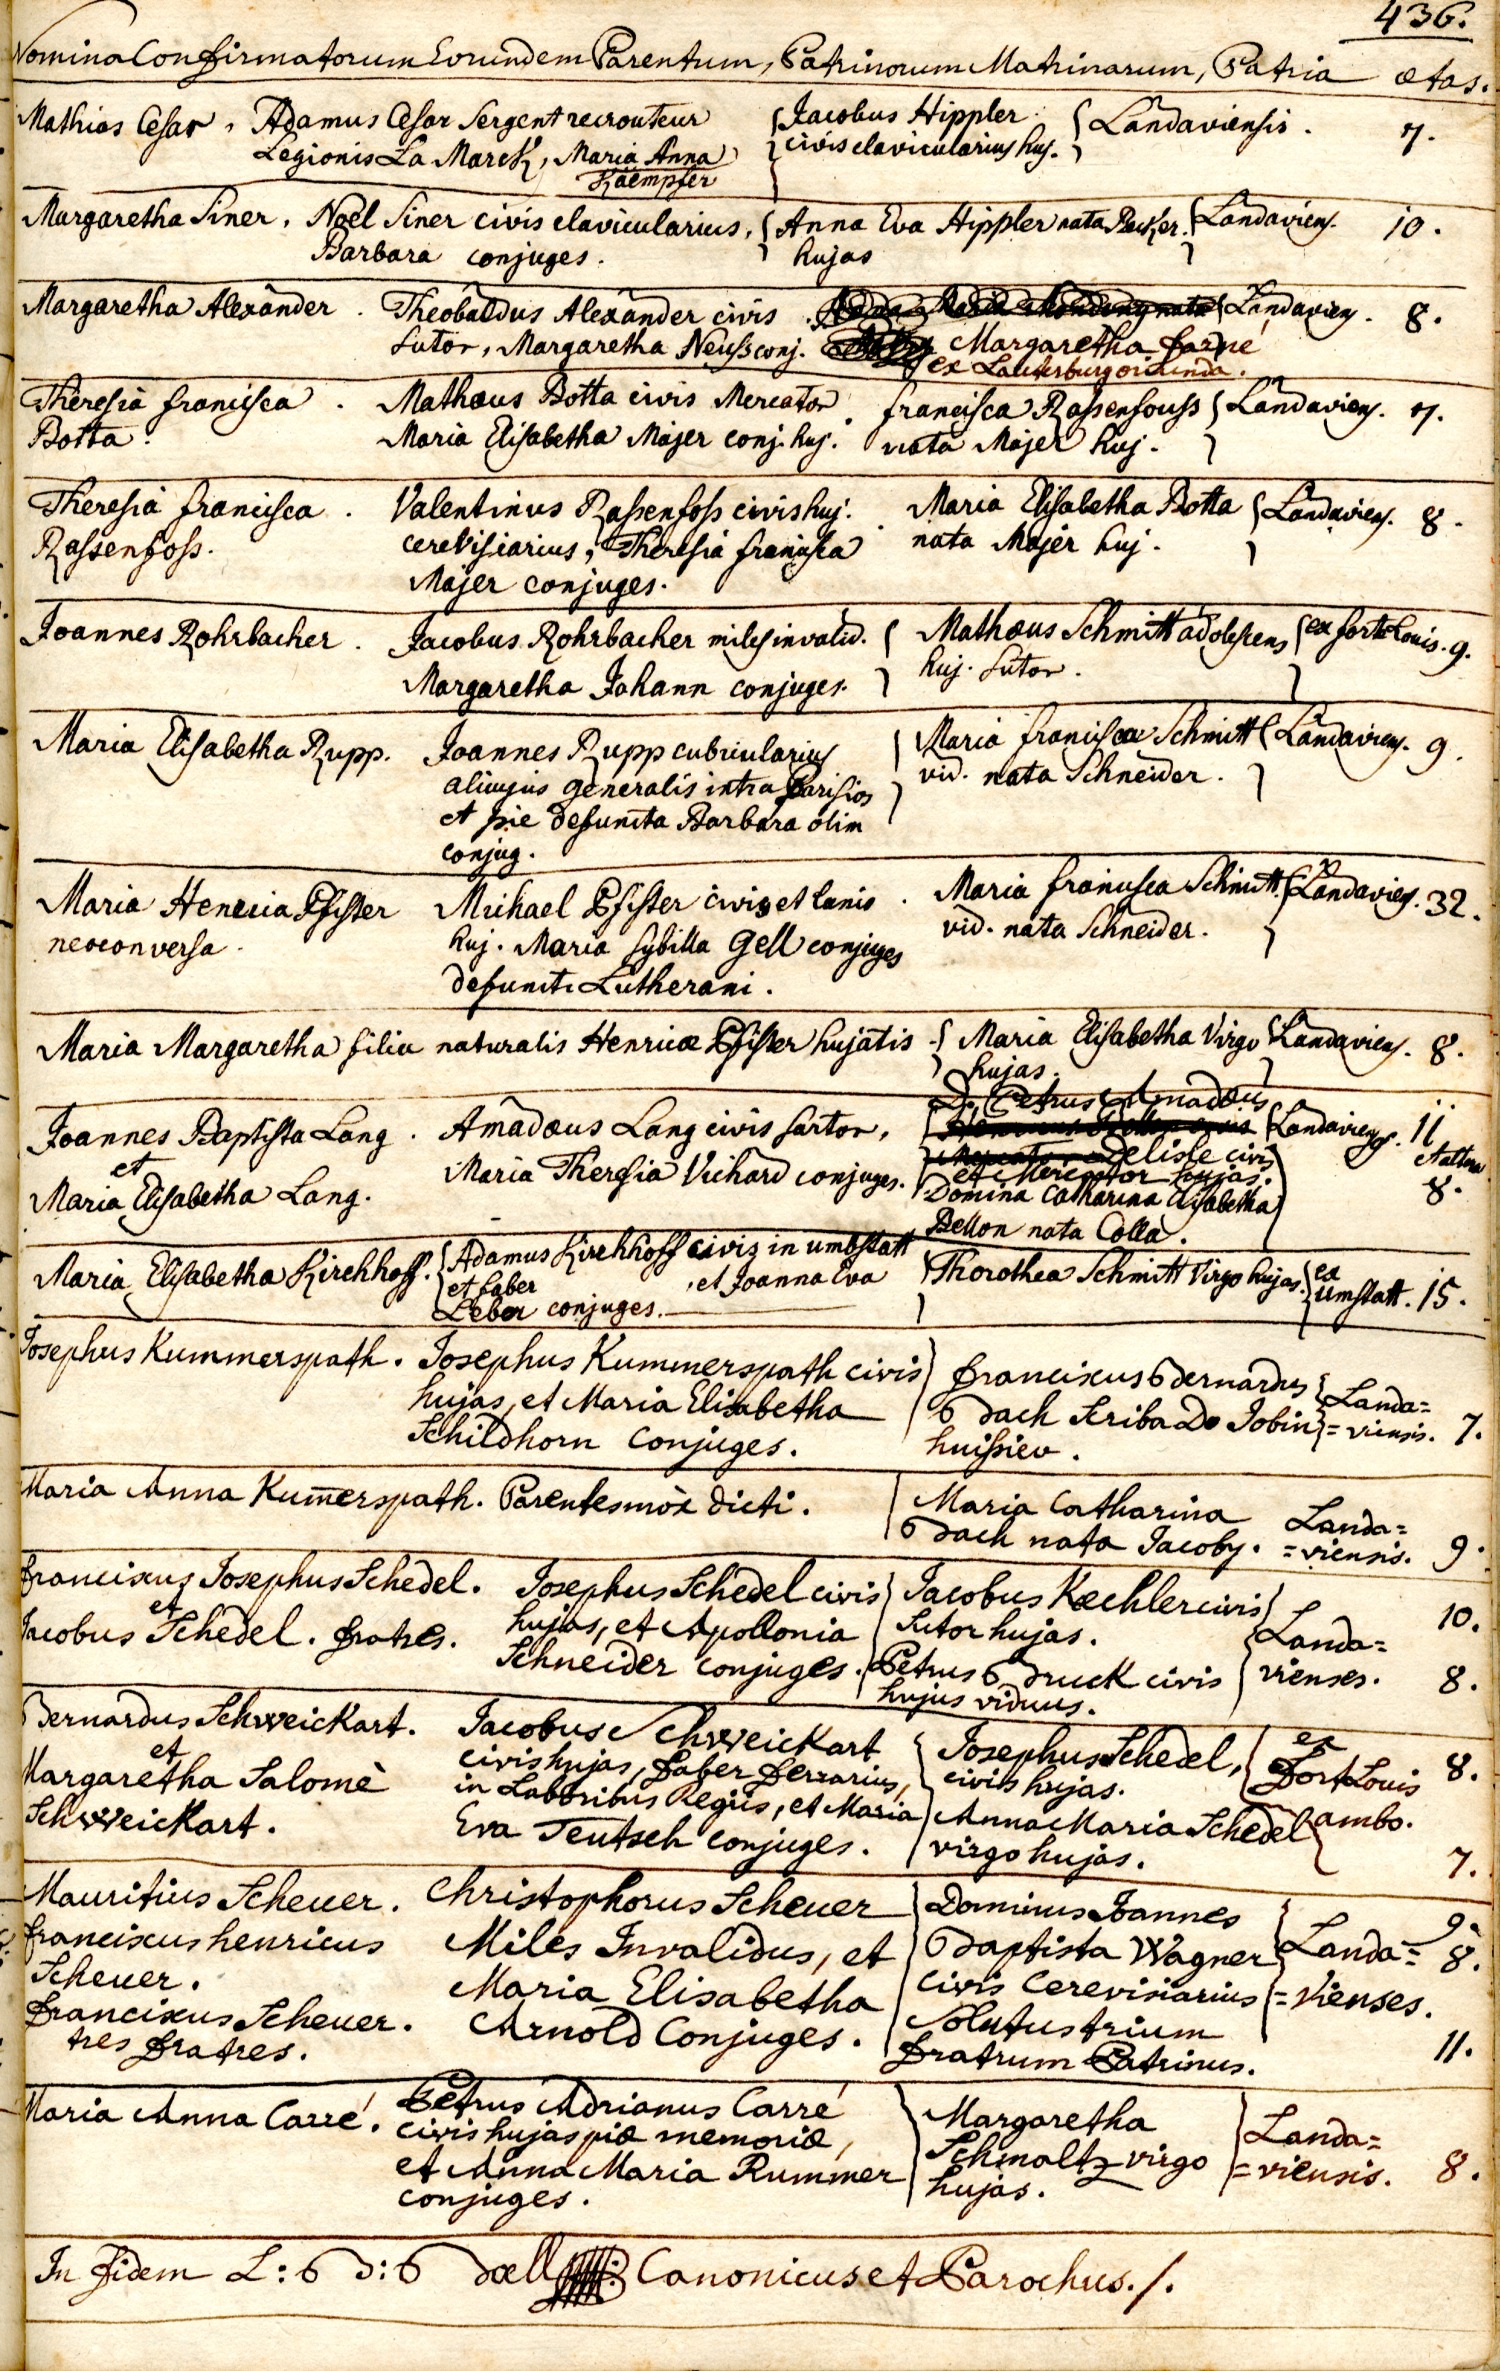 436.
Nomina Confirmatorum Eorundem Parentum, Patrinorum Matrinarum, Patria ætas.
Mathias Cesar. Adamus Cesar Sergent recrouteur Jacobus Hippler Landaviensis. 7.
Legionis La Marck, Maria Anna civis clavicularius huj.
Kaempfer
Margaretha Siner. Noël Siner civis clavicularius, Anna Eva Hippler nata Becker. Landaviens. 10.
Barbara conjuges. hujas
Margaretha Alexander. Theobaldus Alexander civis Landaviens. 8.
Sutor, Margaretha Neuss conj. Margaretha
ex Lauterburg oriunda.
Theresia francisca Mathæus Botta civis Mercator francisca Rassenfouss Landaviens. 7.
Botta. Maria Elisabetha Majer conj. huj. nata Majer huj.
Theresia francisca Valentinus Rassenfoss civis huj. Maria Elisabetha Botta Landaviens. 8.
Rassenfoss. cerevisiarius, Theresia francisca nata Majer huj.
Majer conjuges.
Joannes Rohrbacher. Jacobus Rohrbacher miles invalid. Mathæus Schmitt adolescens ex fort Louis. 9.
Margaretha Johann conjuges. huj. Sutor.
Maria Elisabetha Rupp. Joannes Rupp cubicularius Maria francisca Schmitt Landaviens. 9.
alicujus generalis intra Parisios vid. nata Schneider.
et pie defuncta Barbara olim
conjug.
Maria Henricia Pfister Michael Pfister civis et lanio Maria francisca Schmitt Landaviens. 32.
neoconversa. huj. Maria Sybilla Gell conjuges vid. nata Schneider.
defuncti Lutherani.
Maria Margaretha filia naturalis Henricæ Pfister hujatis. Maria Elisabetha Virgo Landaviens. 8.
hujas.
D. Petrus Amadæus
Joannes Baptista Lang. Amadæus Lang civis sartor, Landaviens. 11
et Delisle civis et altera
Maria Elisabetha Lang. Maria Theresia Vichard conjuges. et Mercator hujas. 8.
Domina Catharina Elisabetha
Bellon nata Colla.
Maria Elisabetha Kirchhoff. Adamus Kirchhoff civis in umbstatt Thorothea Schmitt Virgo hujas. ex
et faber, et Joanna Eva Umstatt. 15.
Leber conjuges.
Josephus Kummerspath. Josephus Kummerspath civis Franciscus Bernardus Landa=
hujas, et Maria Elisabetha Bach Scriba Do Jobin =viensis. 7.
Schildhorn conjuges. huissier.
Maria Anna Kum̄erspath. Parentes mox dicti. Maria Catharina Landa=
Bach nata Jacoby. =viensis. 9.
Franciscus Josephus Schedel. Josephus Schedel civis Jacobus Kœchler civis 10.
et hujas, et Apollonia Sutor hujas. Landa=
Jacobus Schedel. Fratres. Schneider conjuges. Petrus Bruck civis vienses. 8.
hujus viduus.
Bernardus Schweickart. Jacobus Schweickart Josephus Schedel, ex 8.
et civis hujas, Faber Ferrarius, civis hujas. Fort Louis
Margaretha Salomè in Laboribus Regiis, et Maria Anna Maria Schedel ambo.
Schweickart. Eva Teutsch conjuges. virgo hujas. 7.
Mauritius Scheuer. Christophorus Scheuer Dominus Joannes 9.
Franciscus henricus Miles Invalidus, et Baptista Wagner Landa= 8.
Scheuer. Maria Elisabetha civis Cerevisiarius =vienses.
Franciscus Scheuer. Arnold Conjuges. Solutus trium 11.
tres Fratres. Fratrum Patrinus.
Maria Anna Carré. Petrus Adrianus Carré Margaretha Landa=
civis hujas piæ memoriæ, Schmaltz virgo =viensis. 8.
et Anna Maria Rummer hujas.
conjuges.
In Fidem L: B: Bœll Canonicus et Parochus./.